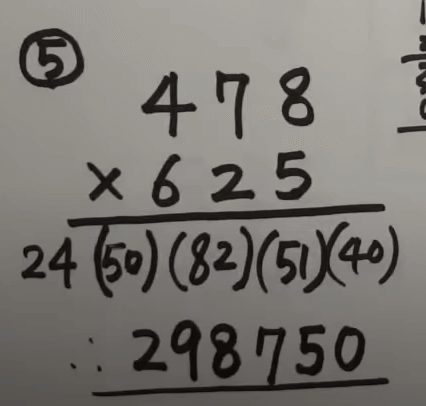 ⑤
478
×625
24(50)(82)(51)(40)
∴298750